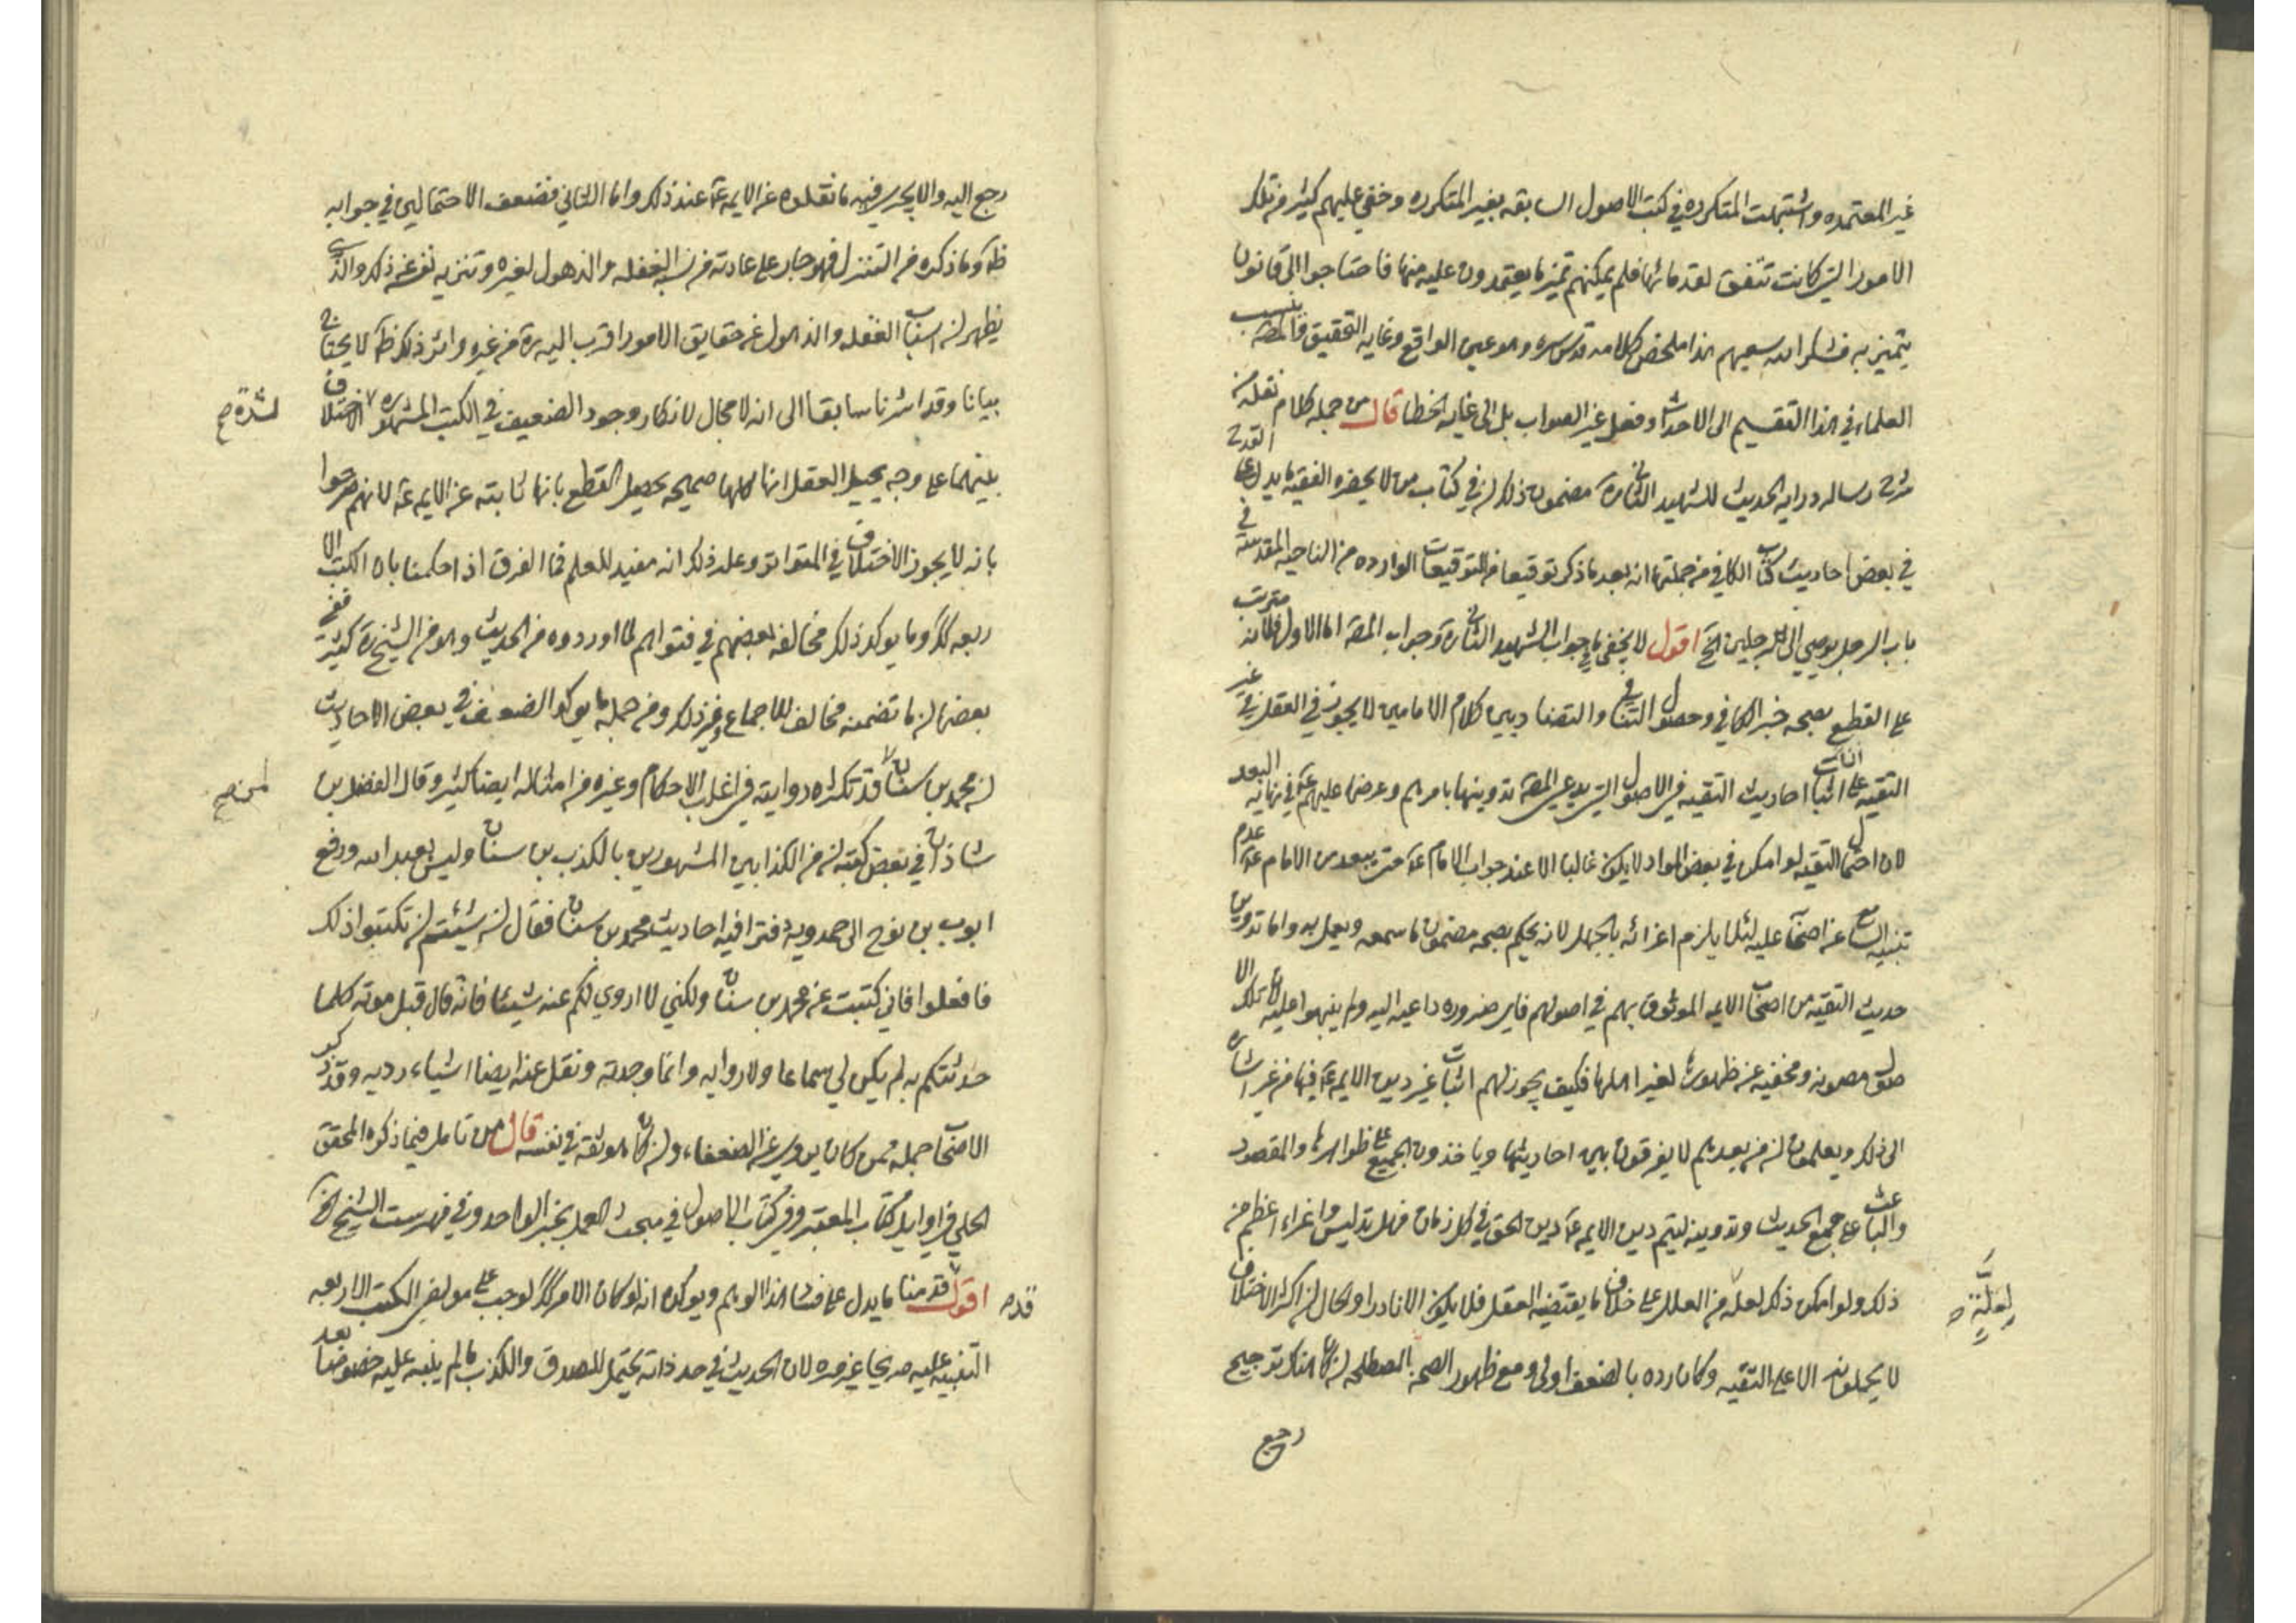 غير المعتمده واشتبهت المتكرره في كتب الاصول السابقه بغير المتكرره وخفي عليهم كثير من تلك
الامور التي كانت تتفق لقدمائها فلم يمكنهم تميز ما يعتمدون عليه منها فاحتاجوا الى قانون
يتميز به فشكر الله سعيهم هذا ملخص كلامه قدس سره وهو عين الواقع وغايه التحقيق
العلماء في هذا التقسيم الى الاحداث وفعل غير الصواب بل الى غايه الخطا قال من جمله كلام نقله من
شرح رساله درايه الحديث للشهيد الثاني ره مضمون ذلك ان في كتاب من لا يحضره الفقيه ما يدل على القدح
في بعض احاديث كتاب الكافي من جملتها انه بعد ما ذكر توقيعا من التوقيعات الوارده من الناحيه المقدسه في
باب الرجل يوصي الى الرجلين الخ اقول لا يخفى ما في جواب الشهيد الثاني ره وجواب المصه اما الاول فلانه مترتب
على القطع بصحه خبر الكافي وحصول التنافي والتضاد بين كلام الامامين لا يجوز في العقل في غير
التقيه على ان اثبات احاديث التقيه في الاصول التي يدعي المصه تدوينها بامرهم وعرضها عليهم عم في نهايه البعد
لان احتمال التقيه لو امكن في بعض المواد لا يكون غالبا الا عند جواب الامام عم حتى يبعد من الامام عم عدم
تنبيه السامع من اصحابه عليه لئلا يلزم اغرائه بالجهل لانه يحكم بصحه مضمون ما سمعه ويعمل به واما تدوين
حديث التقيه من اصحاب الايمه الموثوق بهم في اصولهم فاي ضروره داعيه اليه ولم ينبهوا عليه كان تلك الا
صول مصونه ومخفيه عن ظهورها لغير اهلها فكيف يجوز لهم اثبات غير دين الايمه عم فيها من غير اشاره
الى ذلك ويعلمون ان من بعدهم لا يفرقون بين احاديثها وياخذون الجميع على ظواهرها والمقصود
والباعث على جمع الحديث وتدوينه ليتم دين الايمه عم دين الحق في كل زمان فهل تدليس واغراء اعظم من
ذلك ولو امكن ذلك لعله من العلل على خلاف ما يقتضيه العقل فلا يكون الا نادرا والحال ان اكثر الاختلاف
لا يحملونه الا على التقيه وكان رده بالضعف اولى ومع ظهور الصحه المصطلحه ان كان هناك ترجيح
رجع
رجع اليه والا يجري فيه ما نقلوه عن الايمه عم عند ذلك واما الثاني فضعف الاحتمالين في جوابه
ظه وما ذكره من التنزل فهو جار على عادته من نسبه الغفله والذهول لغيره وتنزيه نفسه عن ذلك والذي
يظهر ان اسناب الغفله والذهول عن حقايق الامور اقرب اليه ره من غيره واثر ذلك ظه لا يحتاج
بيانا وقد اشرنا سابقا الى انه لا مجال لانكار وجود الضعيف في الكتب المشهوره الاختلاف
لشده صح
بينهما على وجه يحيل العقل انها كلها صحيحه يحصل القطع بانها ثابته عن الايمه عم لانهم صرحوا
بانه لا يجوز الاختلاف في المتواتر وعلة ذلك انه مفيد للعلم فما الفرق اذا حكمنا بان الكتب الا
ربعه كك ومما يوكد ذلك مخالفه بعضهم في فتواهم لما اوردوه من الحديث وهو من الشيخ ره كثير ففي
بعضها ان ما تضمنه مخالف للاجماع وغير ذلك ومن جمله ما يوكد الضعف في بعض الاحاديث
ان محمد بن سنان قد تكثر روايته في اغلب الاحكام وغيره من امثاله ايضا كثير وقال الفضل بن
شاذان في بعض كتبه ان من الكذابين المشهورين بالكذب بن سنان وليس بعبد الله ودفع
ايوب بن نوح الى حمدويه دفترا فيه احاديث محمد بن سنان فقال ان شئتم ان تكتبوا ذلك
فافعلوا فاني كتبت عن محمد بن سنان ولكني لا اروي لكم عنه شيئا فانه قال قبل موته كلما
حدثتكم به لم يكن لي سماعا ولا روايه وانما وجدته ونقل عنه ايضا اشياء رديه وقد ذكر
الاصحاب جمله ممن كان يروي عن الضعفاء وان كان هو ثقه في نفسه قال من تامل فيما ذكره المحقق
الحلي في اوايل كتاب المعتبر وفي كتاب الاصول في مبحث العمل بخبر الواحد وفي فهرست الشيخ الخ
اقول قدمنا ما يدل على منشا هذا الوهم ويوكده انه لو كان الامر كك لوجب على مولفي الكتب الاربعه
التنبيه عليه صريحا غير مره لان الحديث في حد ذاته يحتمل للصدق والكذب ما لم ينبه عليه خصوصا بعد